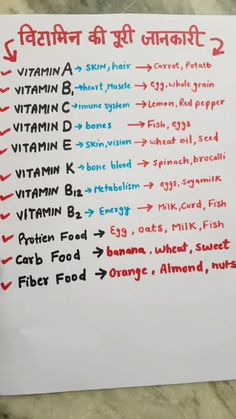 विटामिन की पूरी जानकारी
VITAMIN A → SKIN, hair → Carrot, Potato
VITAMIN B1 → heart, Muscle → Egg, whole grain
VITAMIN C → imune system → Lemon, Red pepper
VITAMIN D → bones → Fish, eggs
VITAMIN E → Skin, vision → wheat oil, Seed
VITAMIN K → bone blood → spinach, brocalli
VITAMIN B12 → Metabolism → eggs, Soyamilk
VITAMIN B2 → Energy → Milk, Curd, Fish
Protien Food → Egg, oats, Milk, Fish
Carb Food → banana, wheat, Sweet
Fiber Food → orange, Almond, nuts